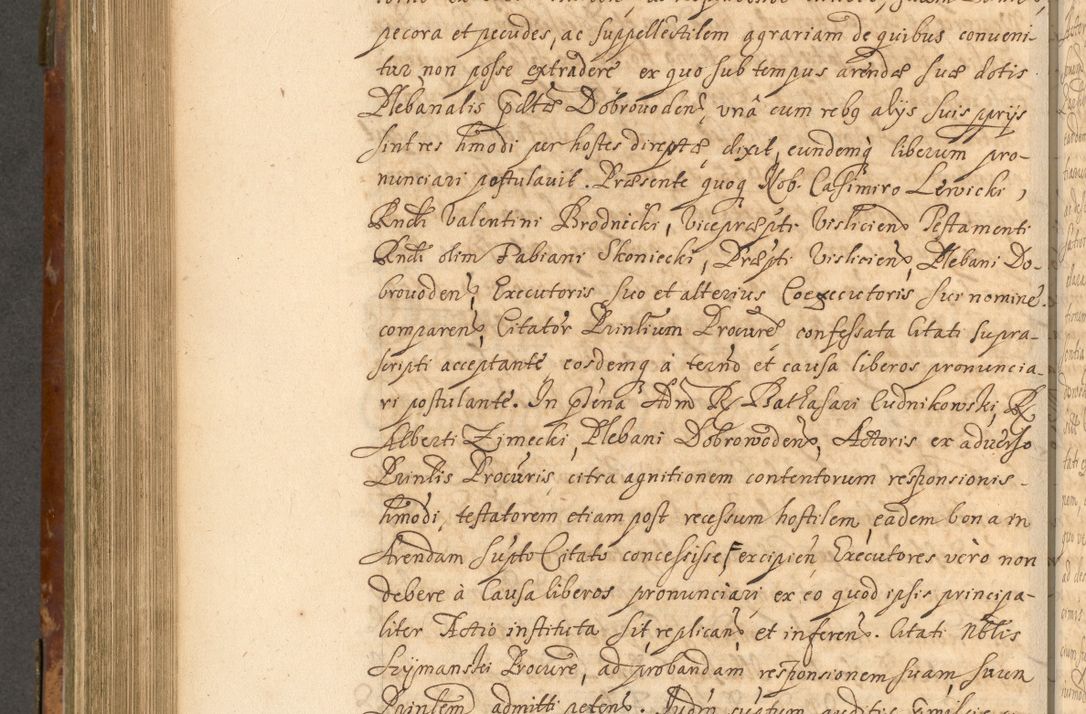 pecora et pecudes, ac suppellectilem agrariam de quibus conveni-
tur non posse extradere ex quo sub tempus arendæ suæ dotis
Plebanalis pdltæ Dobrovodens, unâ cum rebq alijs suis pprijs
sint res hmodi per hostes direptæ, dixit, eundemq liberum pro-
nunciari postulavit. Præsente quoq Nob. Cassimiro Lewicki,
Rndi Valentini Brodnicki, Vicepræpti Vislicien, Testamenti
Rndi olim Fabiani Skoniecki, Præpti Vislicien, Plebani Do-
brovoden, Executoris, suo et alterius Coexecutoris sui nomine
comparen, Citator Prinlium Procure, confessata Citati supra-
scripti acceptante eosdemq à termo et causa liberos pronuncia-
ri postulante. In plena Adm R. Balthasari Cudnikowski, R.
Alberti Zimecki, Plebani Dobrowoden, Actoris ex adverso
Prinlis Procuris, citra agnitionem contentorum responsionis
hmodi, testatorem etiam post recessum hostilem, eadem bona in
Arendam supto Citato concessisse, excipien, Executores vero non
debere à Causa liberos pronunciari, ex eo quod ipsis principa-
liter Actio instituta sit replican et inferen. Citati Nblis
Szymanski Procure, ad probandam responsionem suam, suun
Prinlem admitti peten.